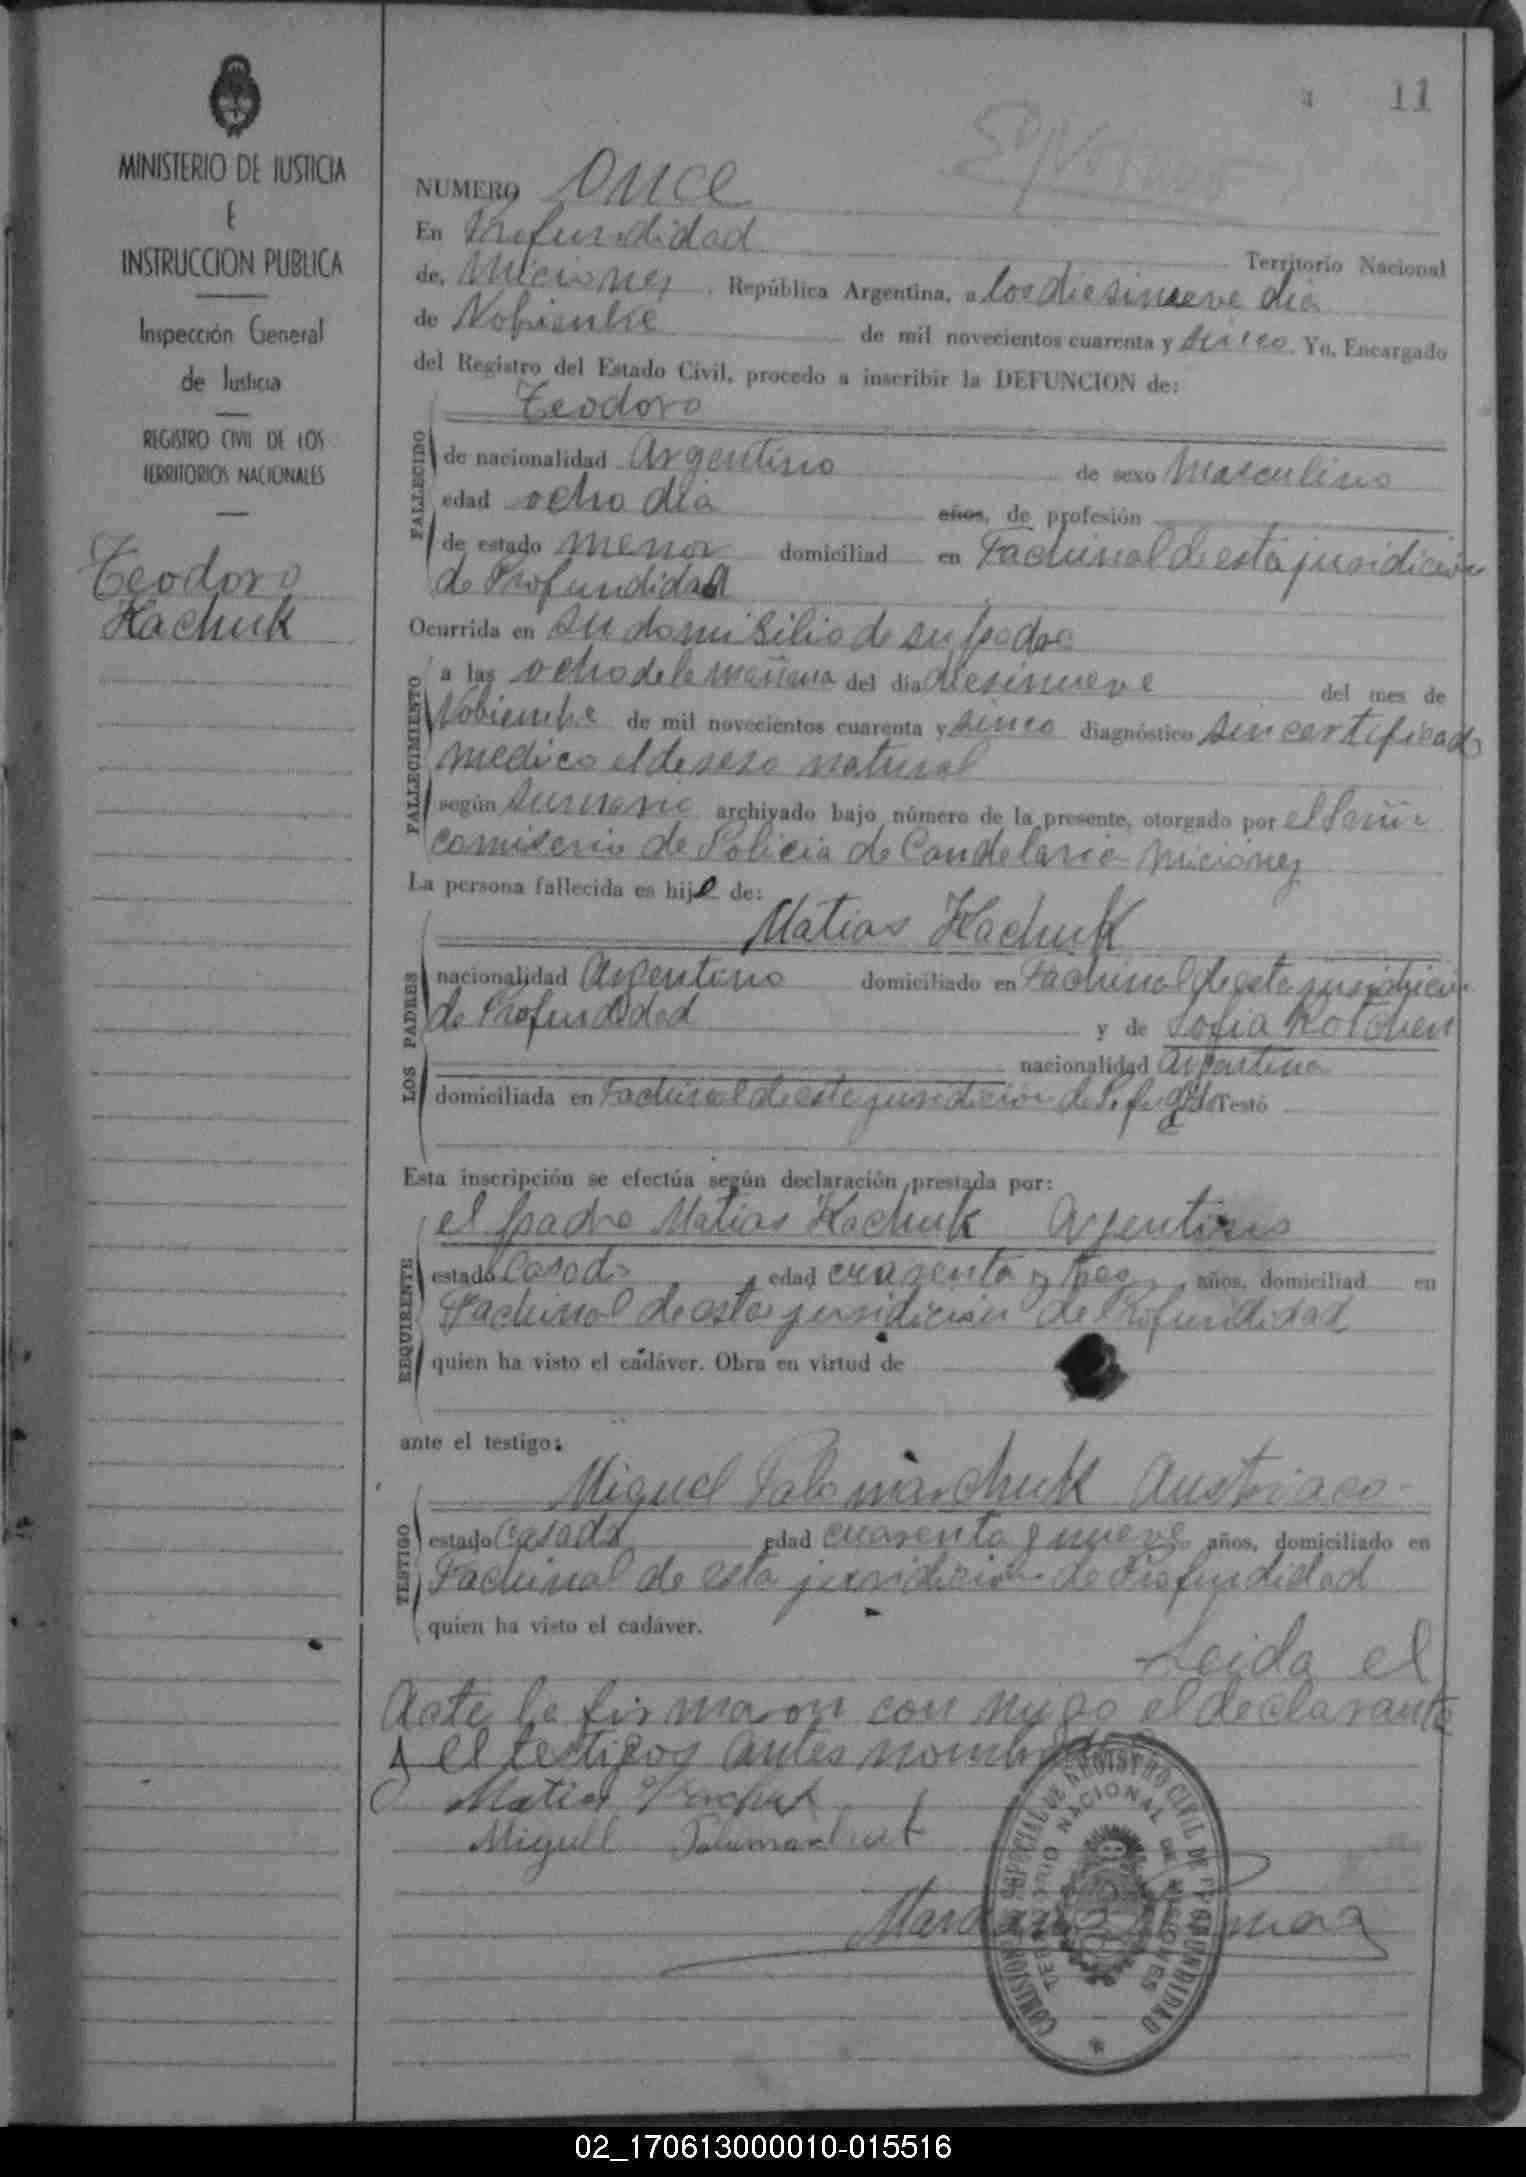 11
MINISTERIO DE JUSTICIA
E
INSTRUCCION PUBLICA
Inspección General
de Justicia
REGISTRO CIVIL DE LOS
TERRITORIOS NACIONALES
Teodoro
Hachuk
NUMERO Once
En Profundidad Territorio Nacional
de, Miciones . República Argentina, a los diesinueve dia
de Nobienbre de mil novecientos cuarenta y sinco. Yo, Encargado
del Registro del Estado Civil, procedo a inscribir la DEFUNCION de:
Teodoro
FALLECIDO
de nacionalidad Argentino de sexo Masculino
edad ocho dia años, de profesión
de estado menor domiciliad en Fachinal de esta juridicion
de Profundidad
Ocurrida en su domisilio de su padre
FALLECIMIENTO
a las ocho de la mañana del dia diesinueve del mes de
Nobienbre de mil novecientos cuarenta y sinco diagnóstico sin certificado
medico el deseso natural
según sumario archivado bajo número de la presente, otorgado por el Señor
comiserio de Policia de Candelaria Miciones
La persona fallecida es hijo de:
Matias Hachuk
LOS PADRES
nacionalidad Argentino domiciliado en Fachinal de esta juridicion
de Profundidad y de Sofia
nacionalidad Argentina
domiciliada en Fachinal de esta juridicion de Testó
Esta inscripción se efectúa según declaración prestada por:
REQUIRENTE
el padre Matias Hachuk Argentino
estado Casado edad cuarenta y tres años, domiciliad en
Fachinal de esta juridicion de Profundidad
quien ha visto el cadáver. Obra en virtud de
ante el testigo:
Miguel Palamarchuk Austriaco
TESTIGO
estado Casado edad cuarenta y nueve años, domiciliado en
Fachinal de esta juridicion de Profundidad
quien ha visto el cadáver.
Leida el
Acte la firmaron con migo el declarante
y el testigos antes nombrados
Matias Hachuk
Miguell Palamarchuk
COMISION ESPECIAL DE REGISTRO CIVIL DE PROFUNDIDAD
TERRITORIO NACIONAL DE MISIONES
02_170613000010-015516